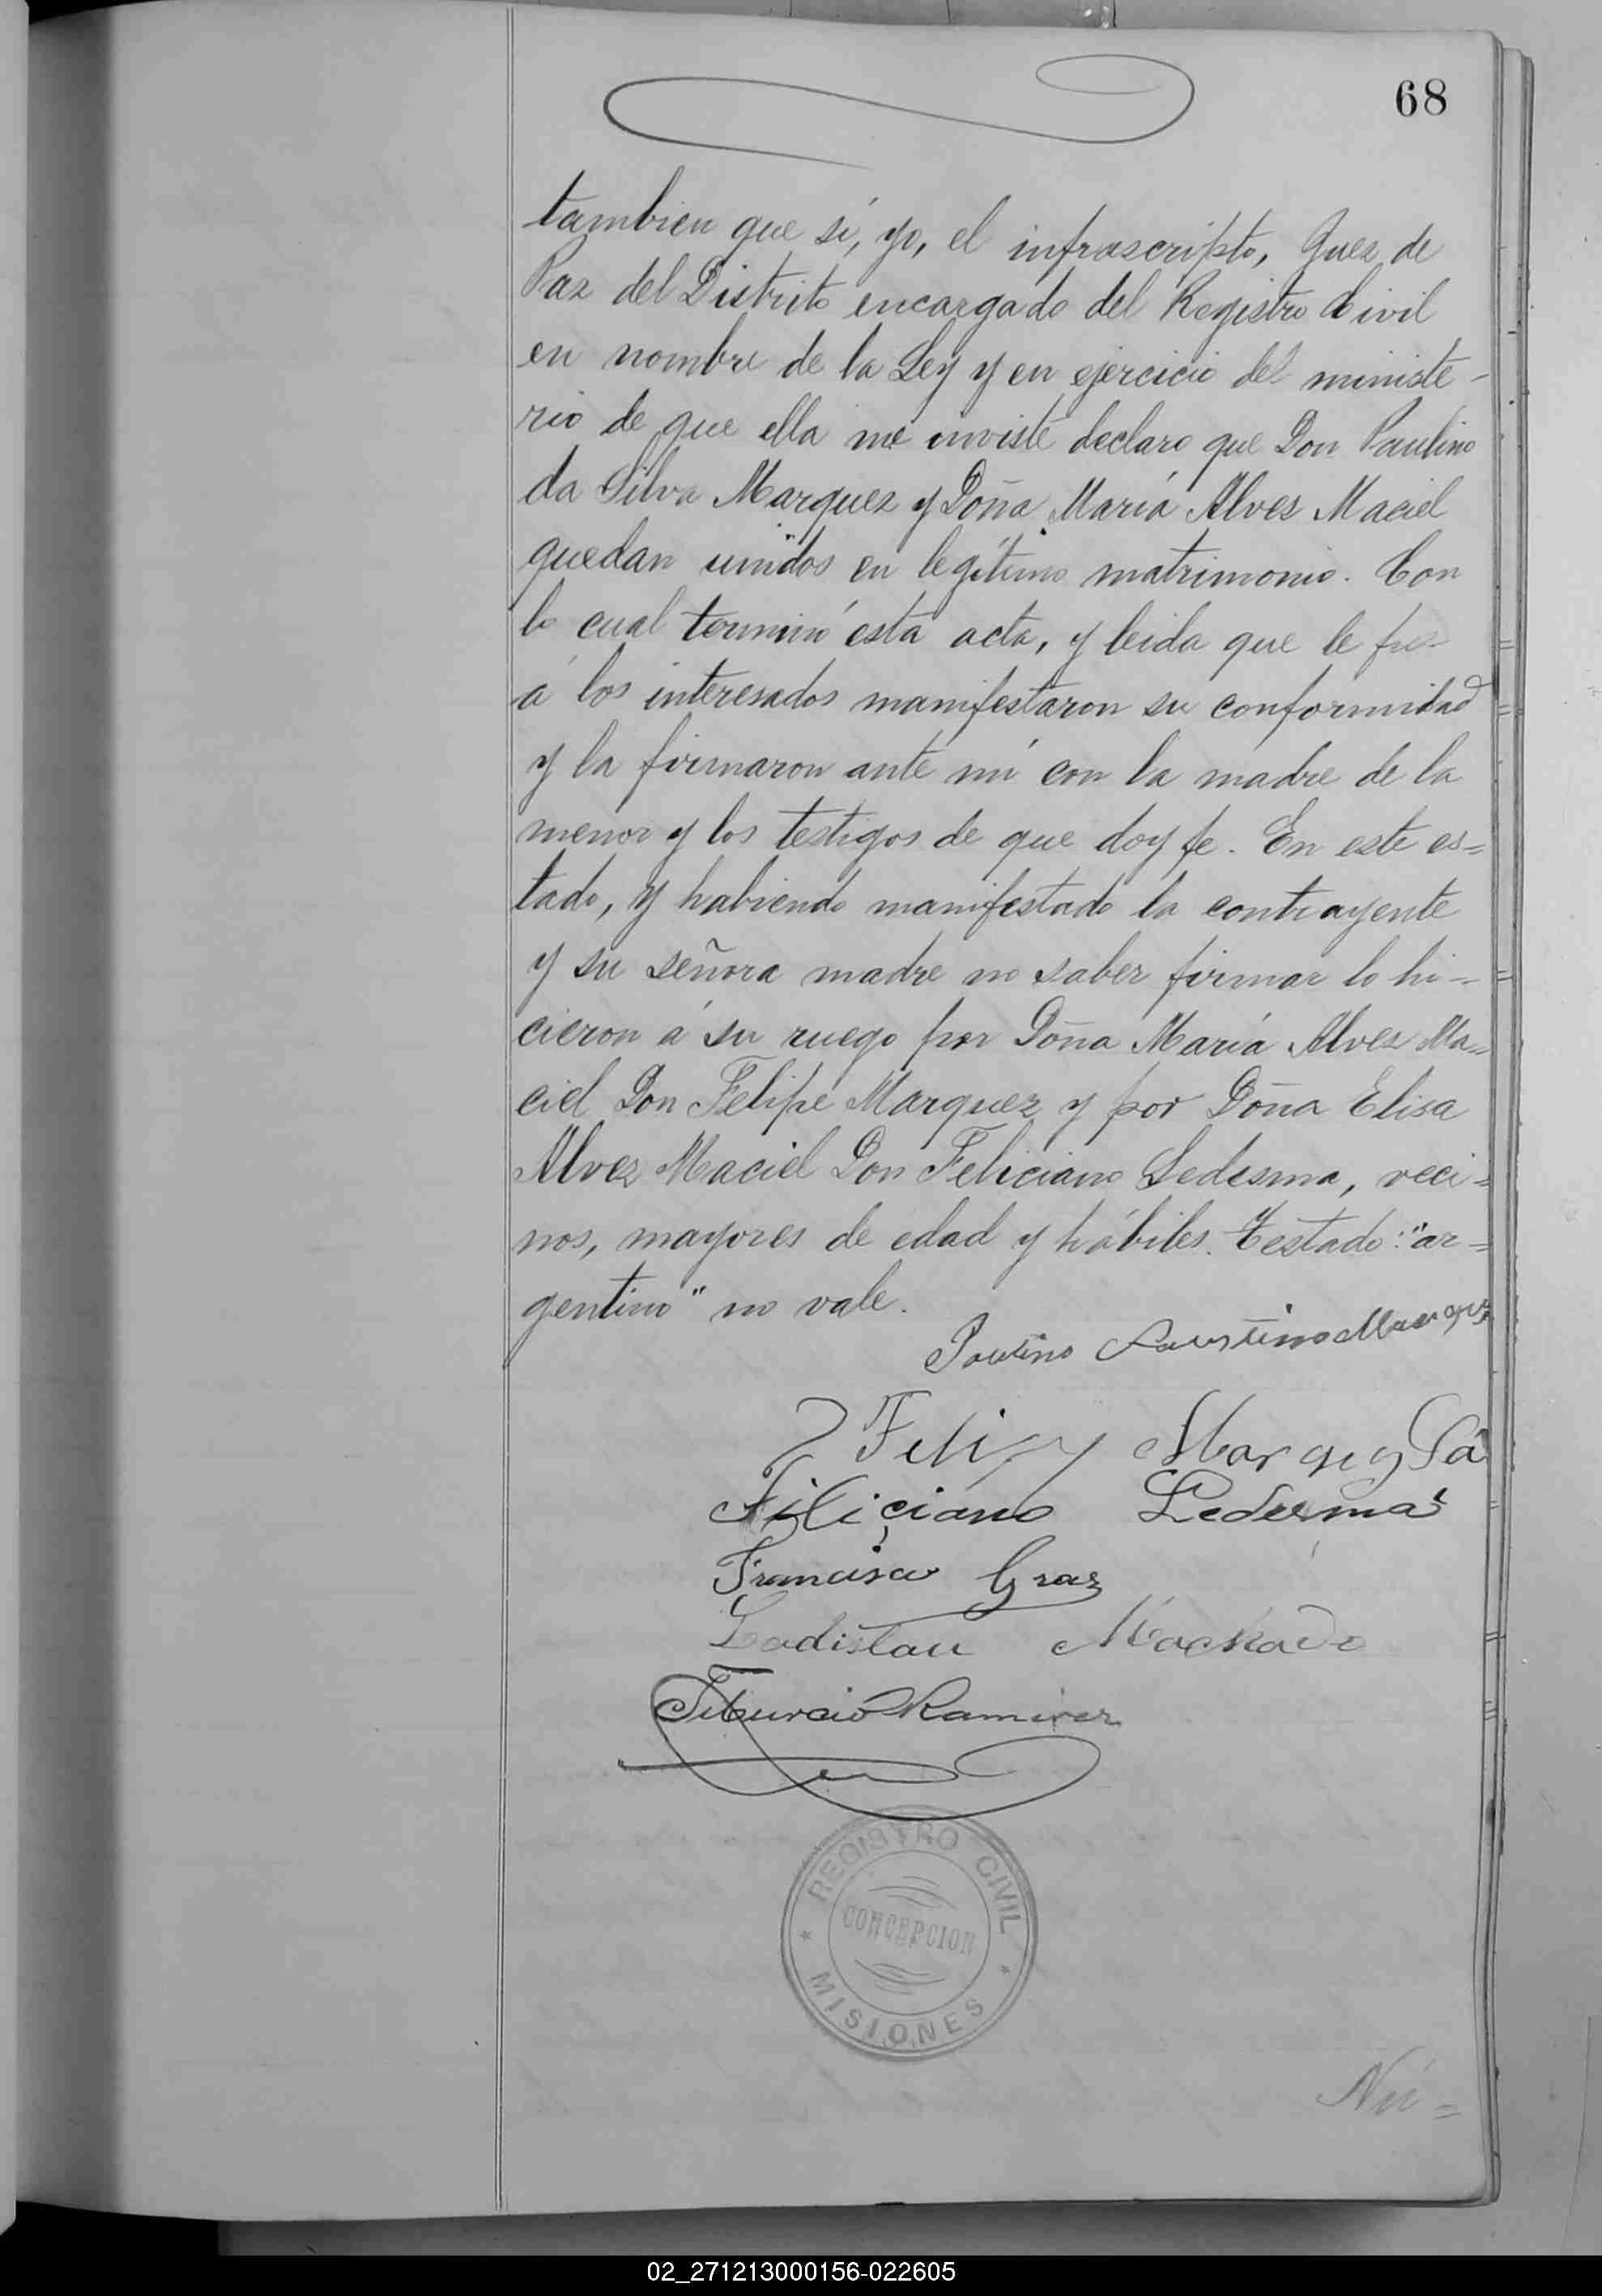 68
tambien que sí, yo, el infrascripto, Juez de
Paz del Distrito encargado del Registro Civil
en nombre de la Ley y en ejercicio del ministe-
rio de que ella me inviste declaro que Don Paulino
da Silva Marquez y Doña María Alves Maciel
quedan unidos en legítimo matrimonio. Con
lo cual terminó esta acta, y leida que le fue
á los interesados manifestaron su conformidad
y la firmaron ante mí con la madre de la
menor y los testigos de que doy fe. En este es=
tado, y habiendo manifestado la contrayente
y su señora madre no saber firmar lo hi-
cieron á su ruego por Doña María Alvez Ma=
ciel Don Felipe Marquez y por Doña Elisa
Alvez Maciel Don Feliciano Ledesma, veci=
nos, mayores de edad y hábiles. Testado: "ar=
gentino" no vale.
Paulino Faustino Marques
Marques Sá
Filiçiano Ledesma
Francisco Gras
Ladislau Machado
Tiburcio Ramirez
REGISTRO CIVIL
CONCEPCION
MISIONES
Nú=
02_271213000156-022605